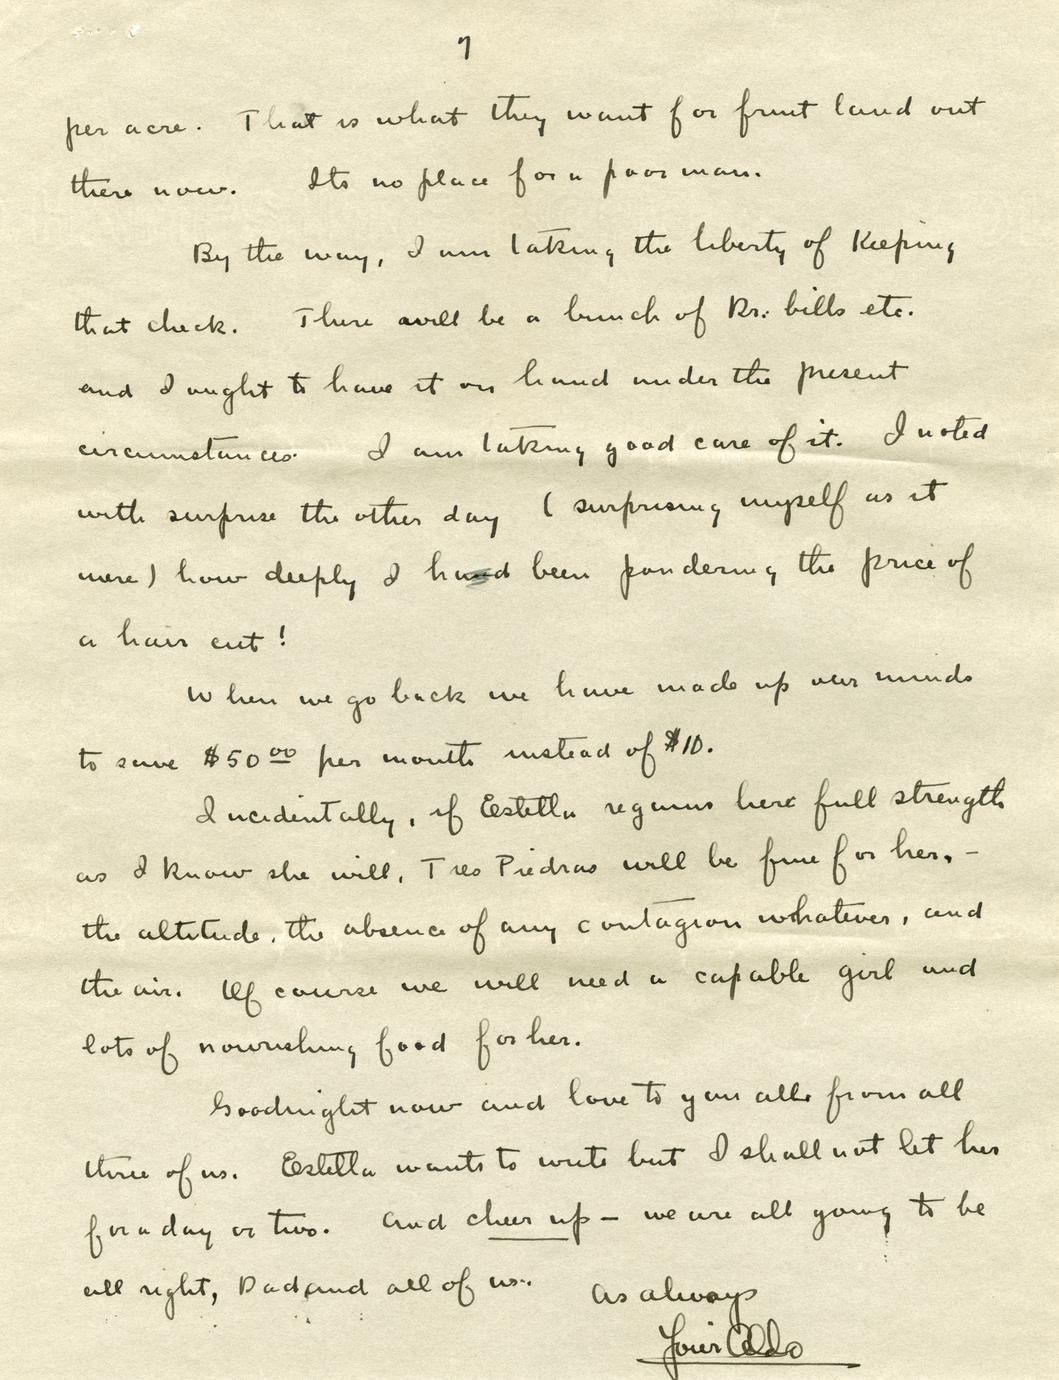 7
per acre. That is what they want for fruit land out
there now. Its no place for a poor man.
By the way, I am taking the liberty of Keeping
that check. There will be a bunch of Dr. bills etc.
and I ought to have it on hand under the present
circumstances. I am taking good care of it. I noted
with surprise the other day (surprising myself as it
were) how deeply I had been pondering the price of
a hair cut!
When we go back we have made up our minds
to save $50 00 per month instead of $10.
Incidentally, if Estella regains here full strength
as I know she will, Tres Piedras will be fine for her, -
the altitude, the absence of any contagion whatever, and
the air. Of course we will need a capable girl and
lots of nourishing food for her.
Goodnight now and love to you all from all
three of us. Estella wants to write but I shall not let her
for a day or two. And cheer up - we are all going to be
all right, Dad and all of us.
As always
Your Aldo